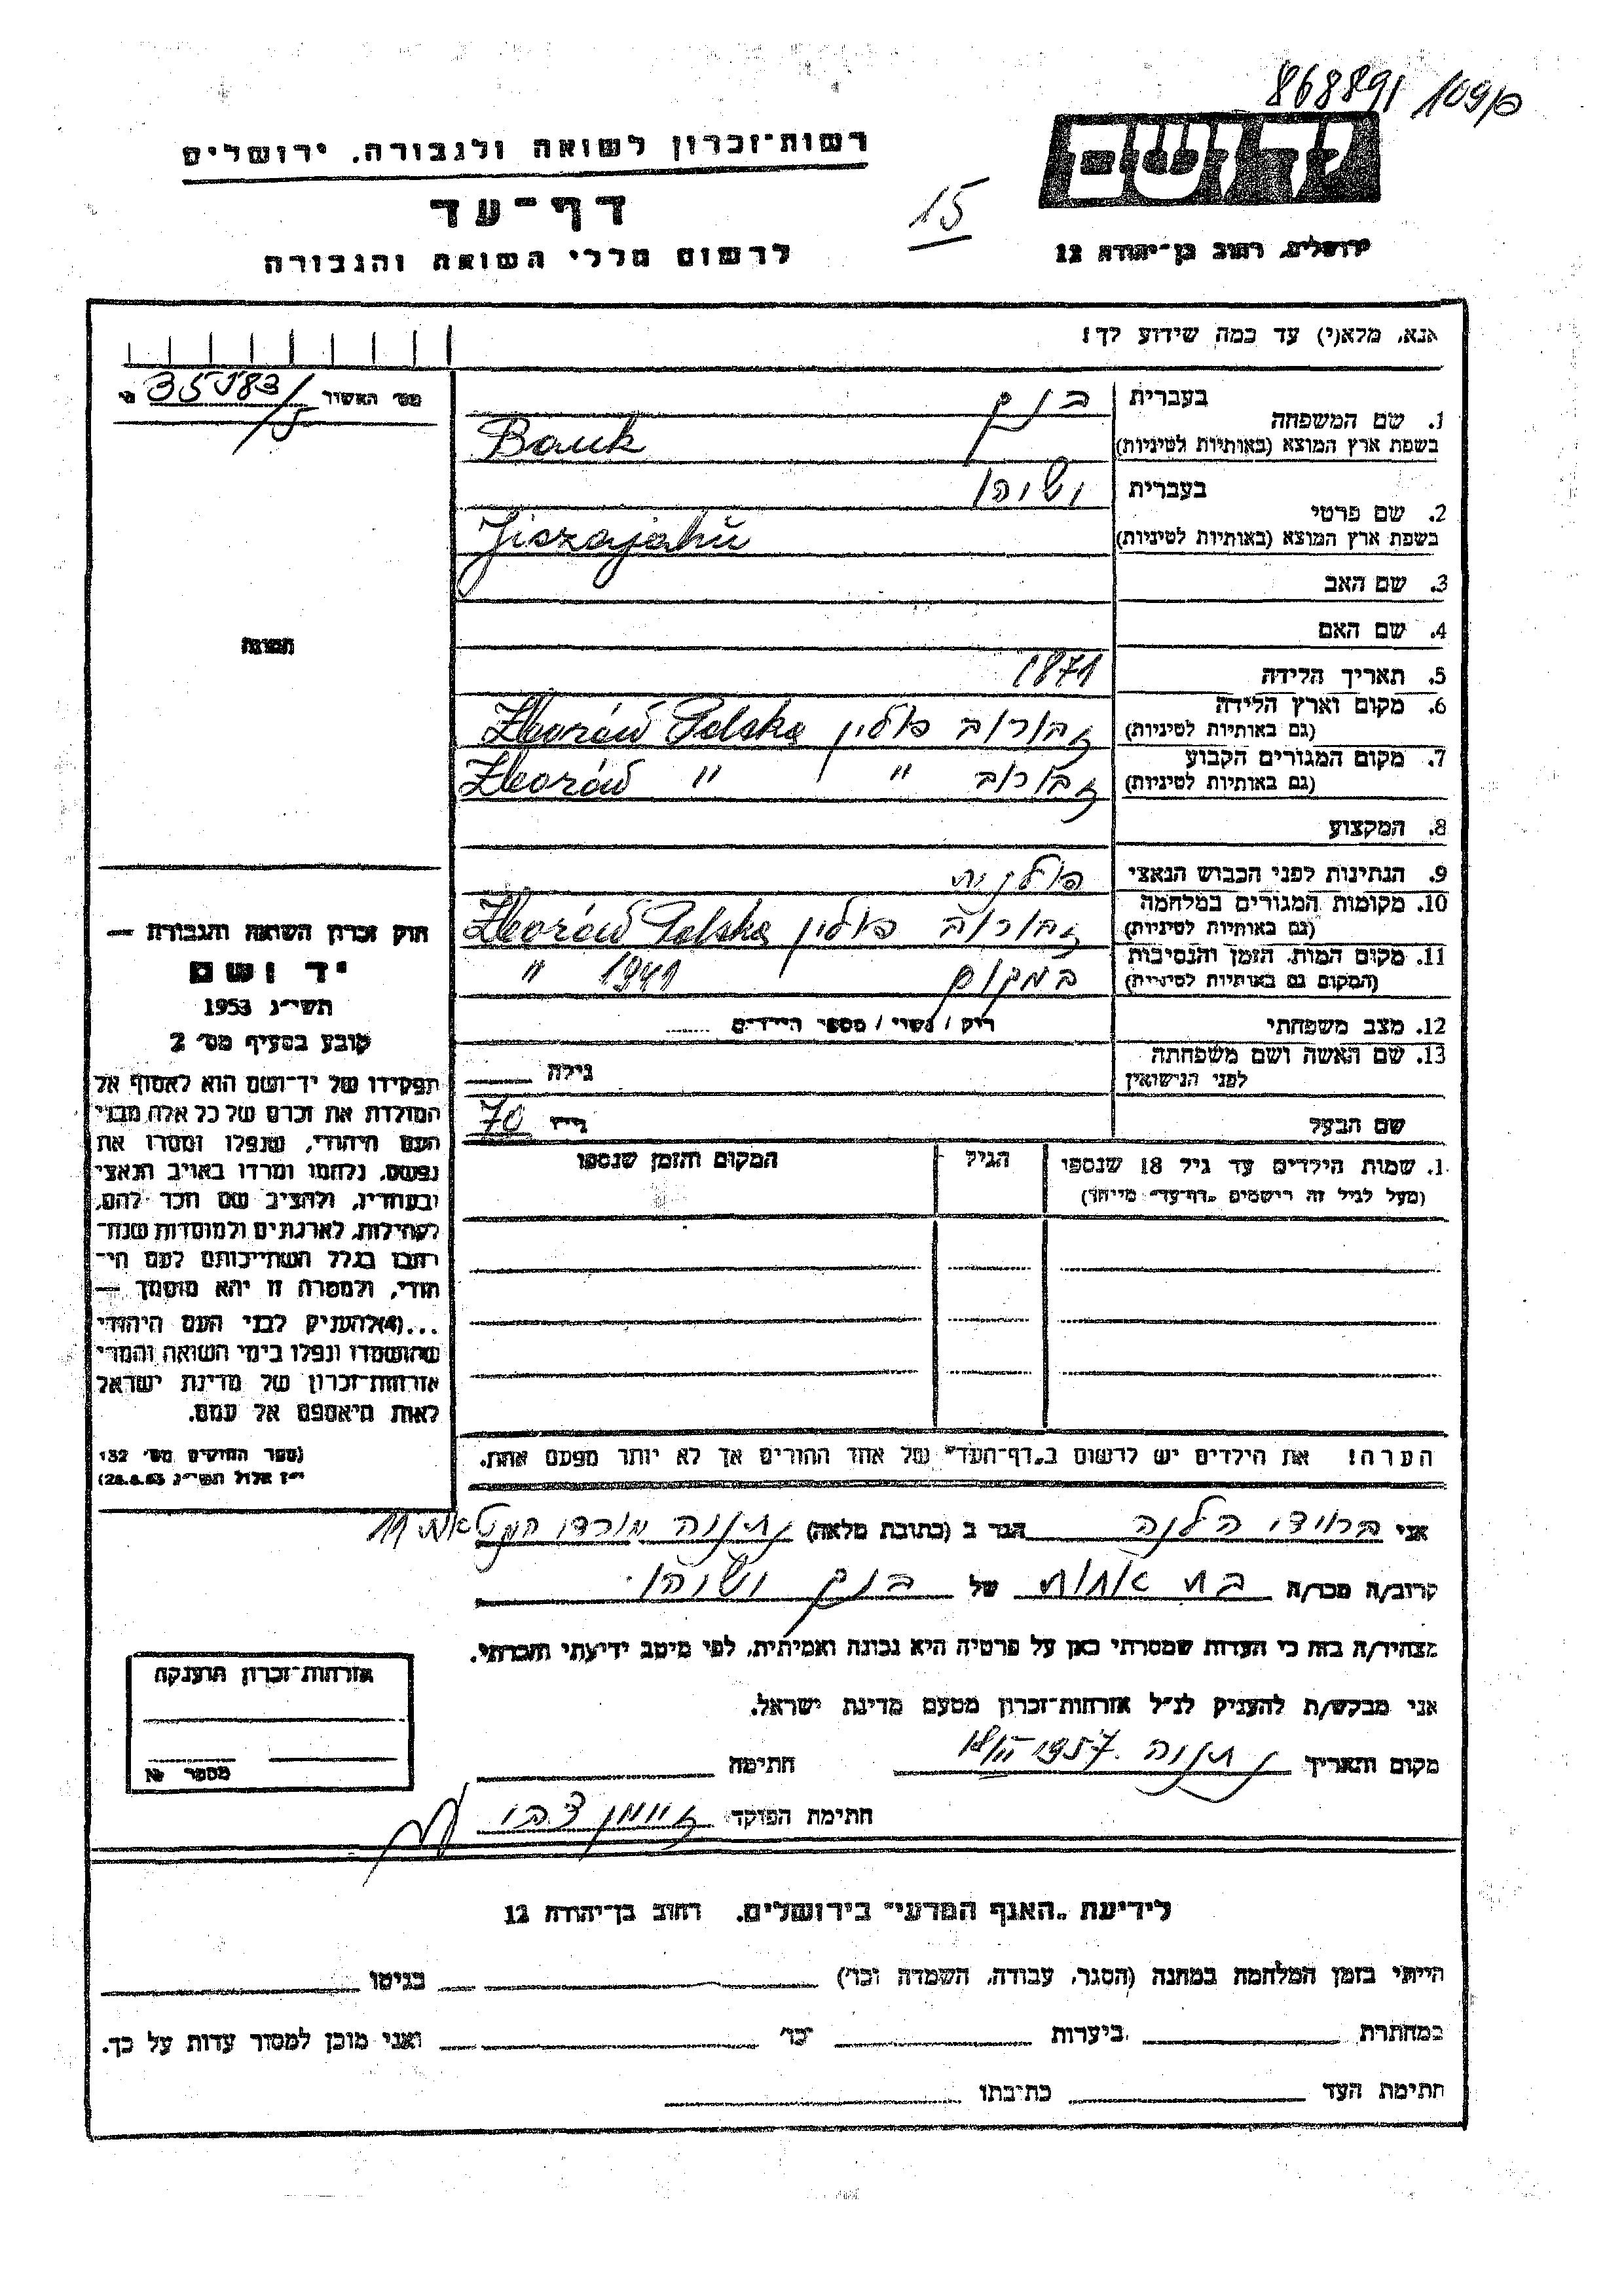 868891 109/פ
יד ושם
ירושלים, רחוב בן־יהודה 12
רשות־זכרון לשואה ולגבורה, ירושלים
דף־עד
לרשום חללי השואה והגבורה
15
אנא, מלא(י) עד כמה שידוע לך!
מס׳ האשור
35183/5
1. שם המשפחה
בעברית בנק
בשפת ארץ המוצא (באותיות לטיניות) Bank
2. שם פרטי
בעברית ישיהו
בשפת ארץ המוצא (באותיות לטיניות) Jiszajahú
3. שם האב
4. שם האם
5. תאריך הלידה 1871
6. מקום וארץ הלידה
(גם באותיות לטיניות) זבורוב פולין Zborów Polska
7. מקום המגורים הקבוע
(גם באותיות לטיניות) זבורוב " Zborów "
8. המקצוע
9. הנתינות לפני הכבוש הנאצי פולנית
10. מקומות המגורים במלחמה
(גם באותיות לטיניות) זבורוב פולין Zborów Polska
11. מקום המות, הזמן והנסיבות
(המקום גם באותיות לטיניות) במקום 1941 "
12. מצב משפחתי רוק / נשוי / מספר הילדים
13. שם האשה ושם משפחתה
לפני הנישואין
גילה
שם הבעל
גילו 70
1. שמות הילדים עד גיל 18 שנספו
(מעל לגיל זה רישמים „דף־עד" מייחד)
הגיל
המקום והזמן שנספו
הערה! את הילדים יש לרשום ב„דף־העד" של אחד ההורים אך לא יותר מפעם אחת.
תמונה
חוק זכרון השואה והגבורה —
יד ושם
תשי״ג 1953
קובע בסעיף מס׳ 2
תפקידו של יד־ושם הוא לאסוף אל
המולדת את זכרם של כל אלה מבני
העם היהודי, שנפלו ומסרו את
נפשם, נלחמו ומרדו באויב הנאצי
ובעוזריו, ולהציב שם וזכר להם,
לקהילות, לארגונים ולמוסדות שנח־
רבו בגלל השתייכותם לעם הי־
הודי, ולמטרה זו יהא מוסמך —
...(4)להעניק לבני העם היהודי
שהושמדו ונפלו בימי השואה והמרי
אזרחות־זכרון של מדינת ישראל
לאות היאספם אל עמם.
(ספר החוקים מס׳ 132
י״ז אלול תשי״ג 28.8.53)
אני ברוידי הלנה הגר ב (כתובת מלאה) נתניה מורדי הגטאות 11
קרוב/ה מכר/ה בת אחות של בנק ישיהו
מצהיר/ה בזה כי העדות שמסרתי כאן על פרטיה היא נכונה ואמיתית, לפי מיטב ידיעתי והכרתי.
אני מבקש/ת להעניק לנ״ל אזרחות־זכרון מטעם מדינת ישראל.
מקום ותאריך נתניה 18/II 1957 חתימה
חתימת הפוקד
אזרחות־זכרון הוענקה
מספר №
לידיעת „האגף המדעי" בירושלים, רחוב בן־יהודה 12
הייתי בזמן המלחמה במחנה (הסגר, עבודה, השמדה וכו׳) בגיטו
במחתרת ביערות וכו׳ ואני מוכן למסור עדות על כך.
חתימת העד כתיבתו